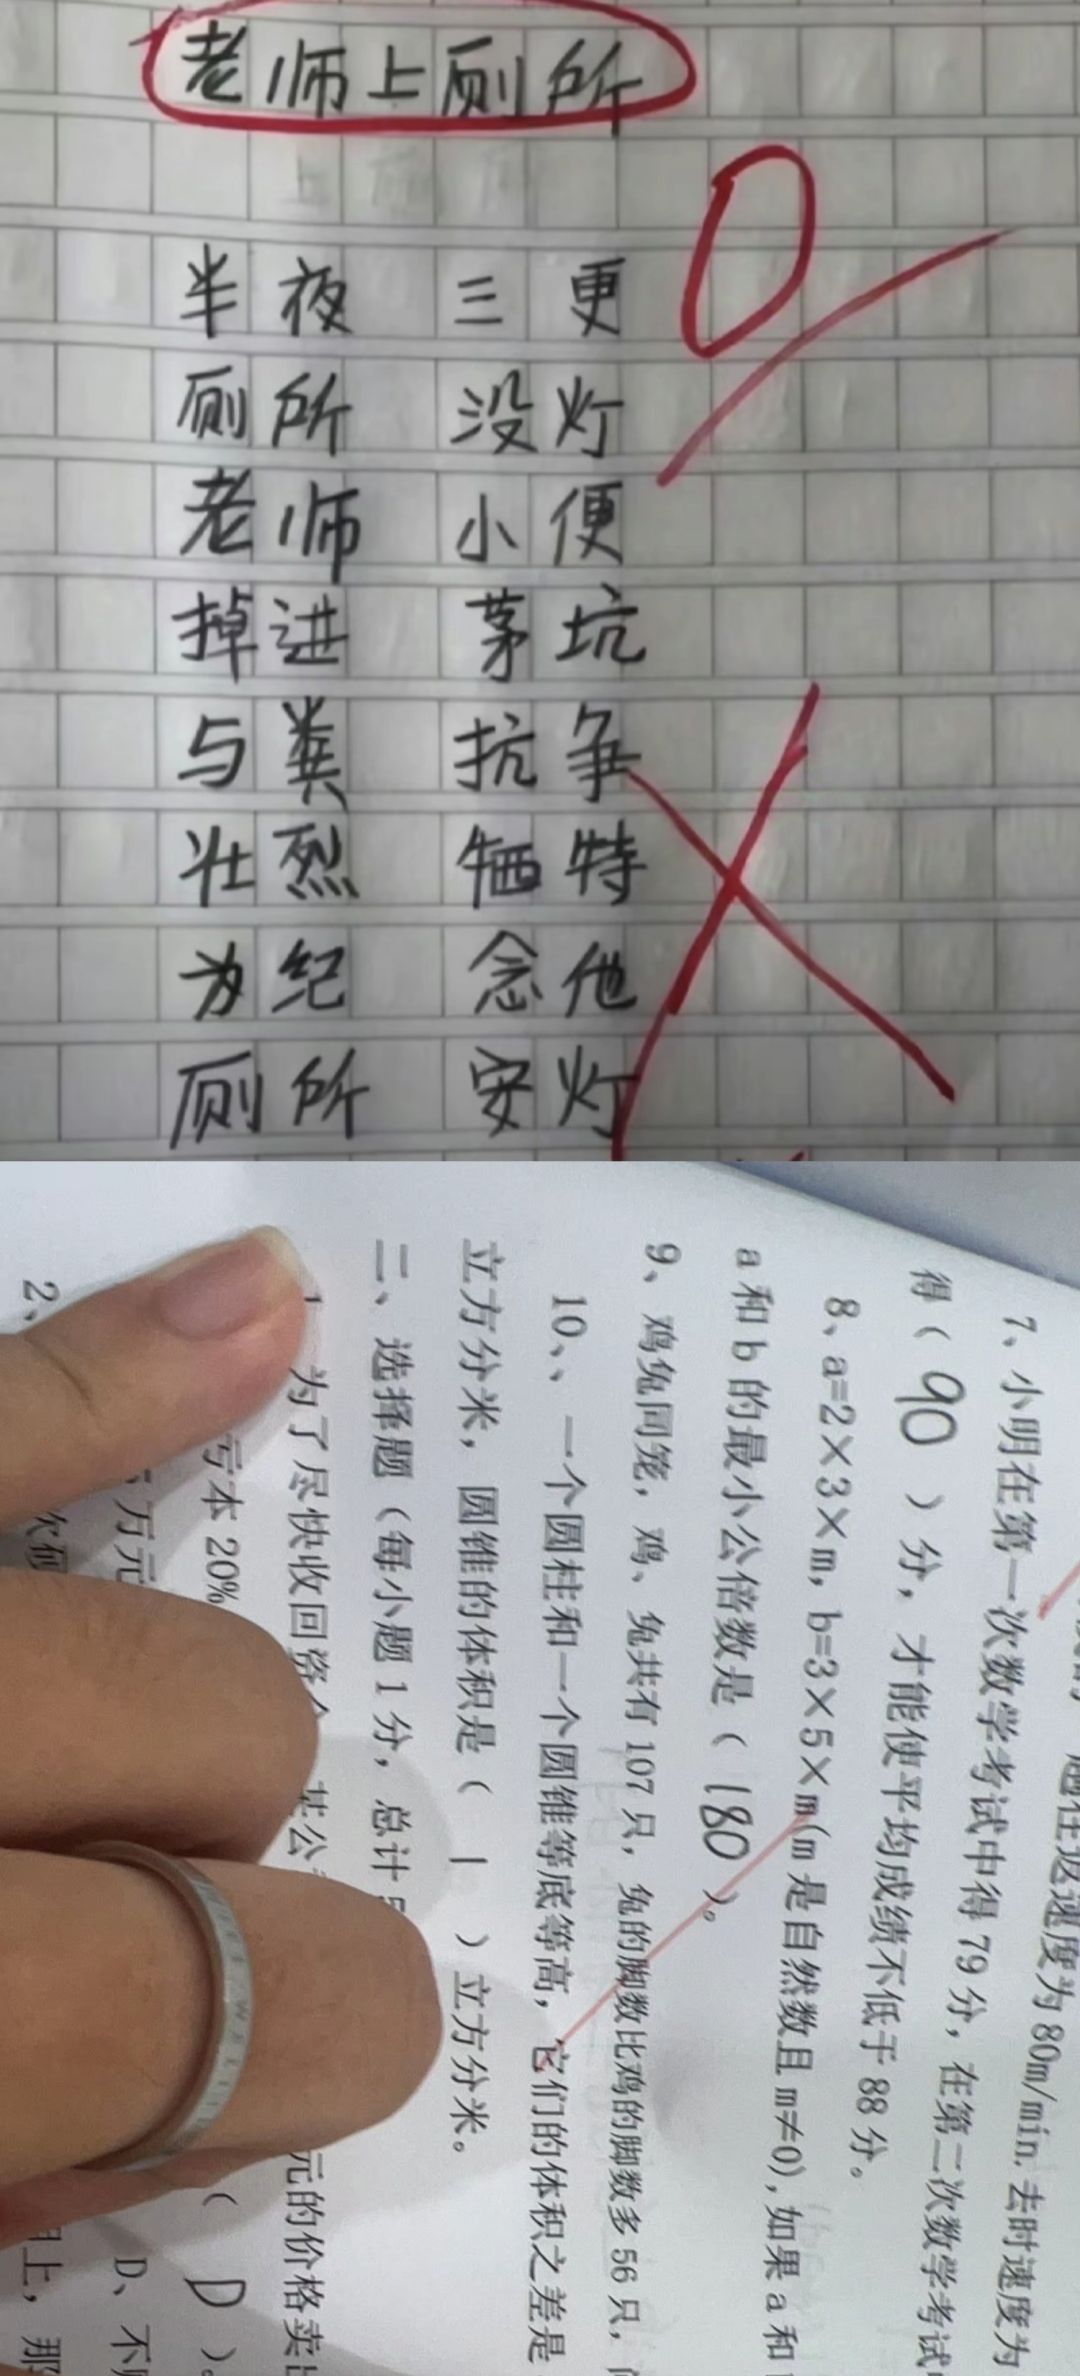 老师上厕所
0
半夜 三更
厕所 没灯
老师 小便
掉进 茅坑
与粪 抗争
壮烈 牺特
为纪 念他
厕所 安灯
速度为80m/min.去时速度为
7、小明在第一次数学考试中得79分，在第二次数学考试
得（90）分，才能使平均成绩不低于88分。
8、a=2×3×m，b=3×5×m(m是自然数且m≠0),如果a和
a和b的最小公倍数是（180）。
9、鸡兔同笼，鸡、兔共有107只，兔的脚数比鸡的脚数多56只，
10、、一个圆柱和一个圆锥等底等高，它们的体积之差是
立方分米，圆锥的体积是（1）立方分米。
二、选择题（每小题1分，总计
为了尽快收回资 某公 元的价格卖出
亏本20% （D）。
万元 D、不
2、 上，那